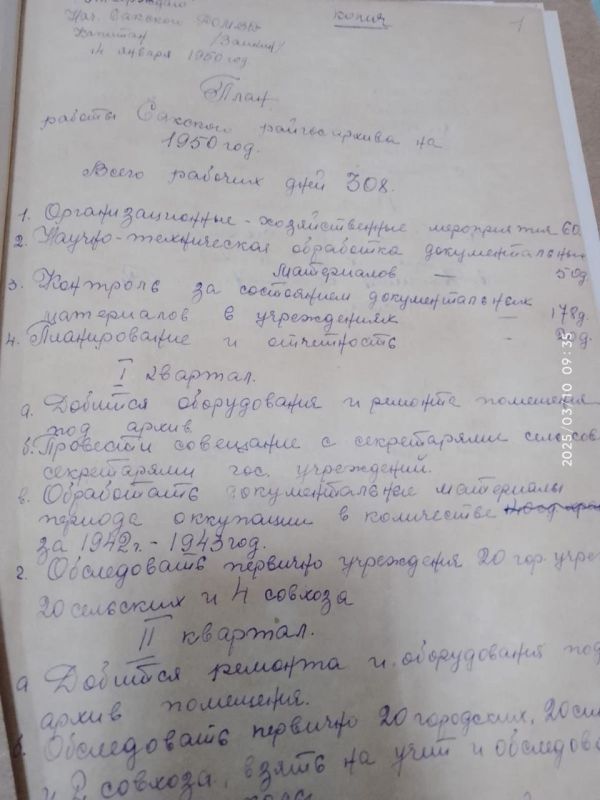 Утверждаю
копия
1
Нач. Сакского РОМГБ
Капитан /Заикин/
14 января 1950 год.
План
работы Сакского райгосархива на
1950 год.
Всего рабочих дней 308.
1. Организационные-хозяйственные мероприятия 60
2. Научно-техническая обработка документальных
материалов — 50д.
3. Контроль за состоянием документальных
материалов в учреждениях — 178д.
4. Планирование и отчетность - 20д.
I квартал.
а. Добится оборудования и ремонта помещения
под архив
б. Провести совещание с секретарями сельсов
секретарями гос. учреждений.
в. Обработать документальные материалы
периода оккупации в количестве
за 1942г. - 1943 год.
г. Обследовать первично учреждения 20 гор. учре
20 сельских и 4 совхоза
II квартал.
а Добится ремонта и оборудования под
архив помещения.
б. Обследовать первично 20 городских, 20 сель
и 2 совхоза, взять на учет и обследова
2025/03/10 09:35